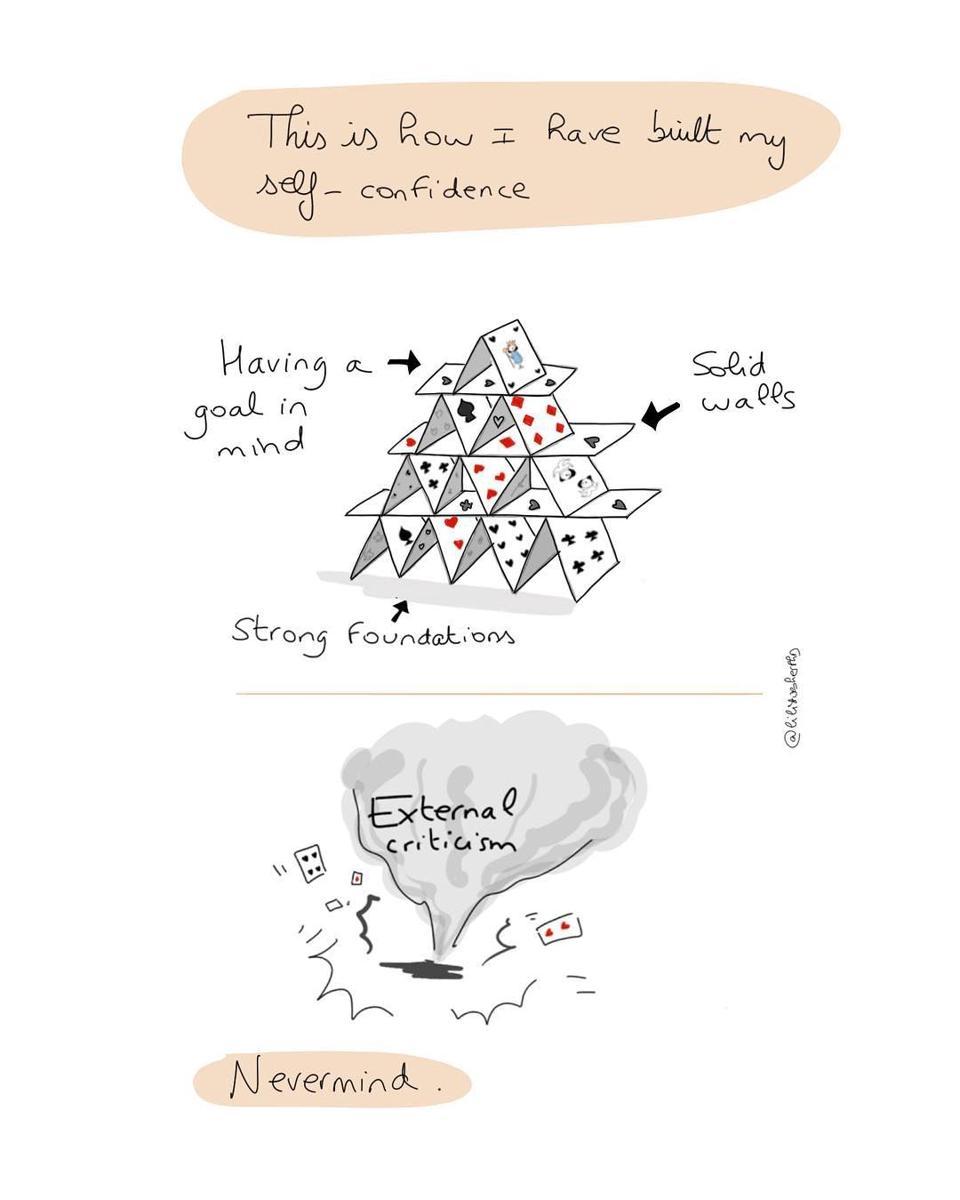 This is how I have built my
self-confidence
Having a
goal in
mind
Solid
walls
Strong Foundations
External
criticism
Nevermind.